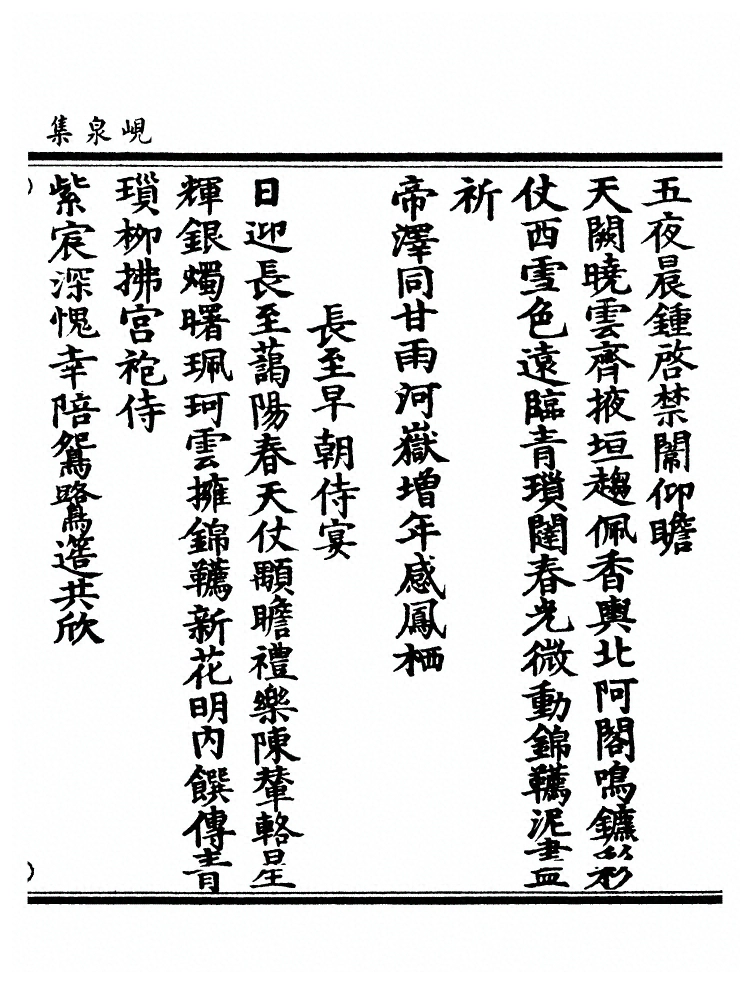 峴泉集
五夜晨鍾啓禁闈仰瞻
天闕曉雲齊掖垣趨佩香輿北阿閣鳴鑣彩
仗西雪色遠臨青瑣闥春光微動錦韉泥盡
祈
帝澤同甘雨河嶽增年感鳳栖
長至早朝侍宴
日迎長至藹陽春天仗顒瞻禮樂陳輦輅星
輝銀燭曙珮珂雲擁錦韉新花明内饌傳青
瑣柳拂宫袍侍
紫宸深愧幸陪鴛鷺簉共欣